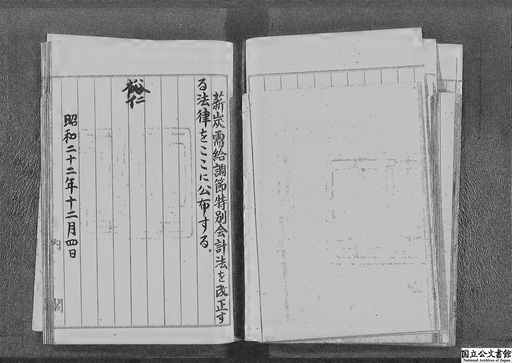 薪炭需給調節特別会計法を改正す
る法律をここに公布する。
裕仁
昭和二十二年十二月四日
内閣
国立公文書館
National Archives of Japan